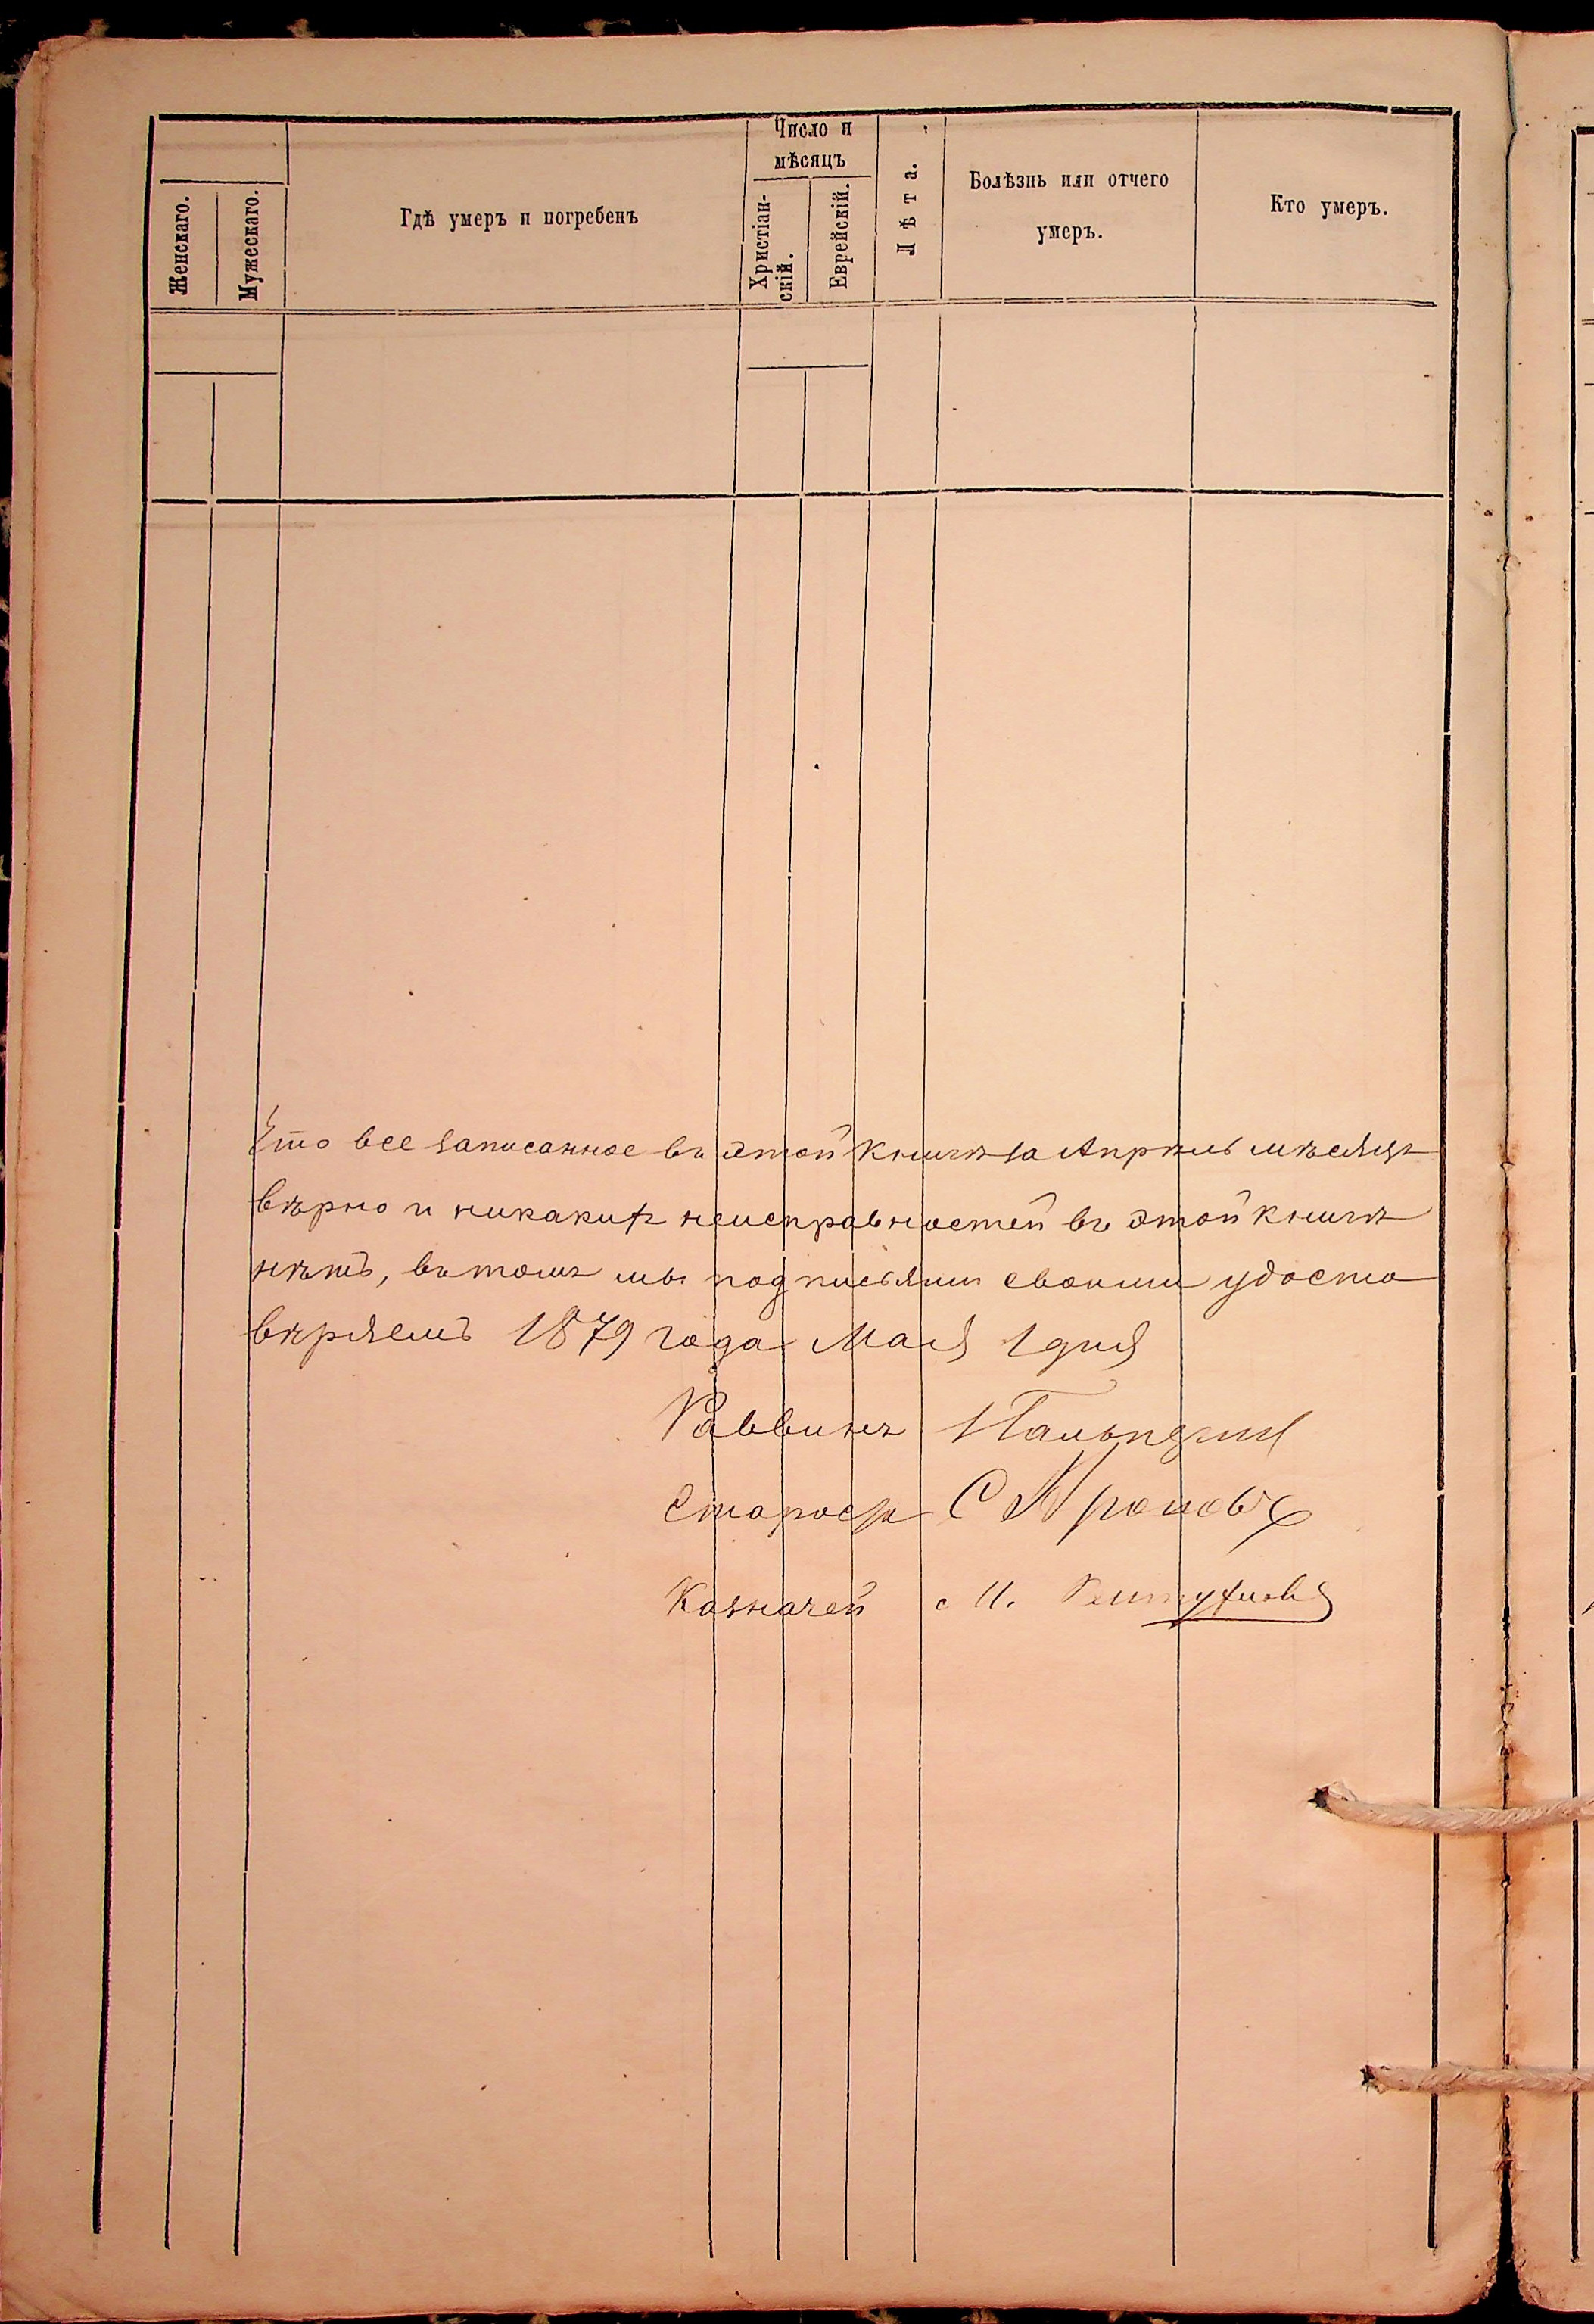 Число и
мѣсяцъ
Женскаго.
Мужескаго.
Гдѣ умеръ и погребенъ
Христіан-
скій.
Еврейскій.
Лѣта.
Болѣзнь или отчего
умеръ.
Кто умеръ.
Что все записанное въ этой книгѣ за Апрѣль мѣсяцъ
вѣрно и никакихъ неисправностей въ этой книгѣ
нѣтъ, въ томъ мы подписями своими удосто
вѣряемъ 1879 года Мая 1 дня
Раввинъ
Староста С
Казначей М.